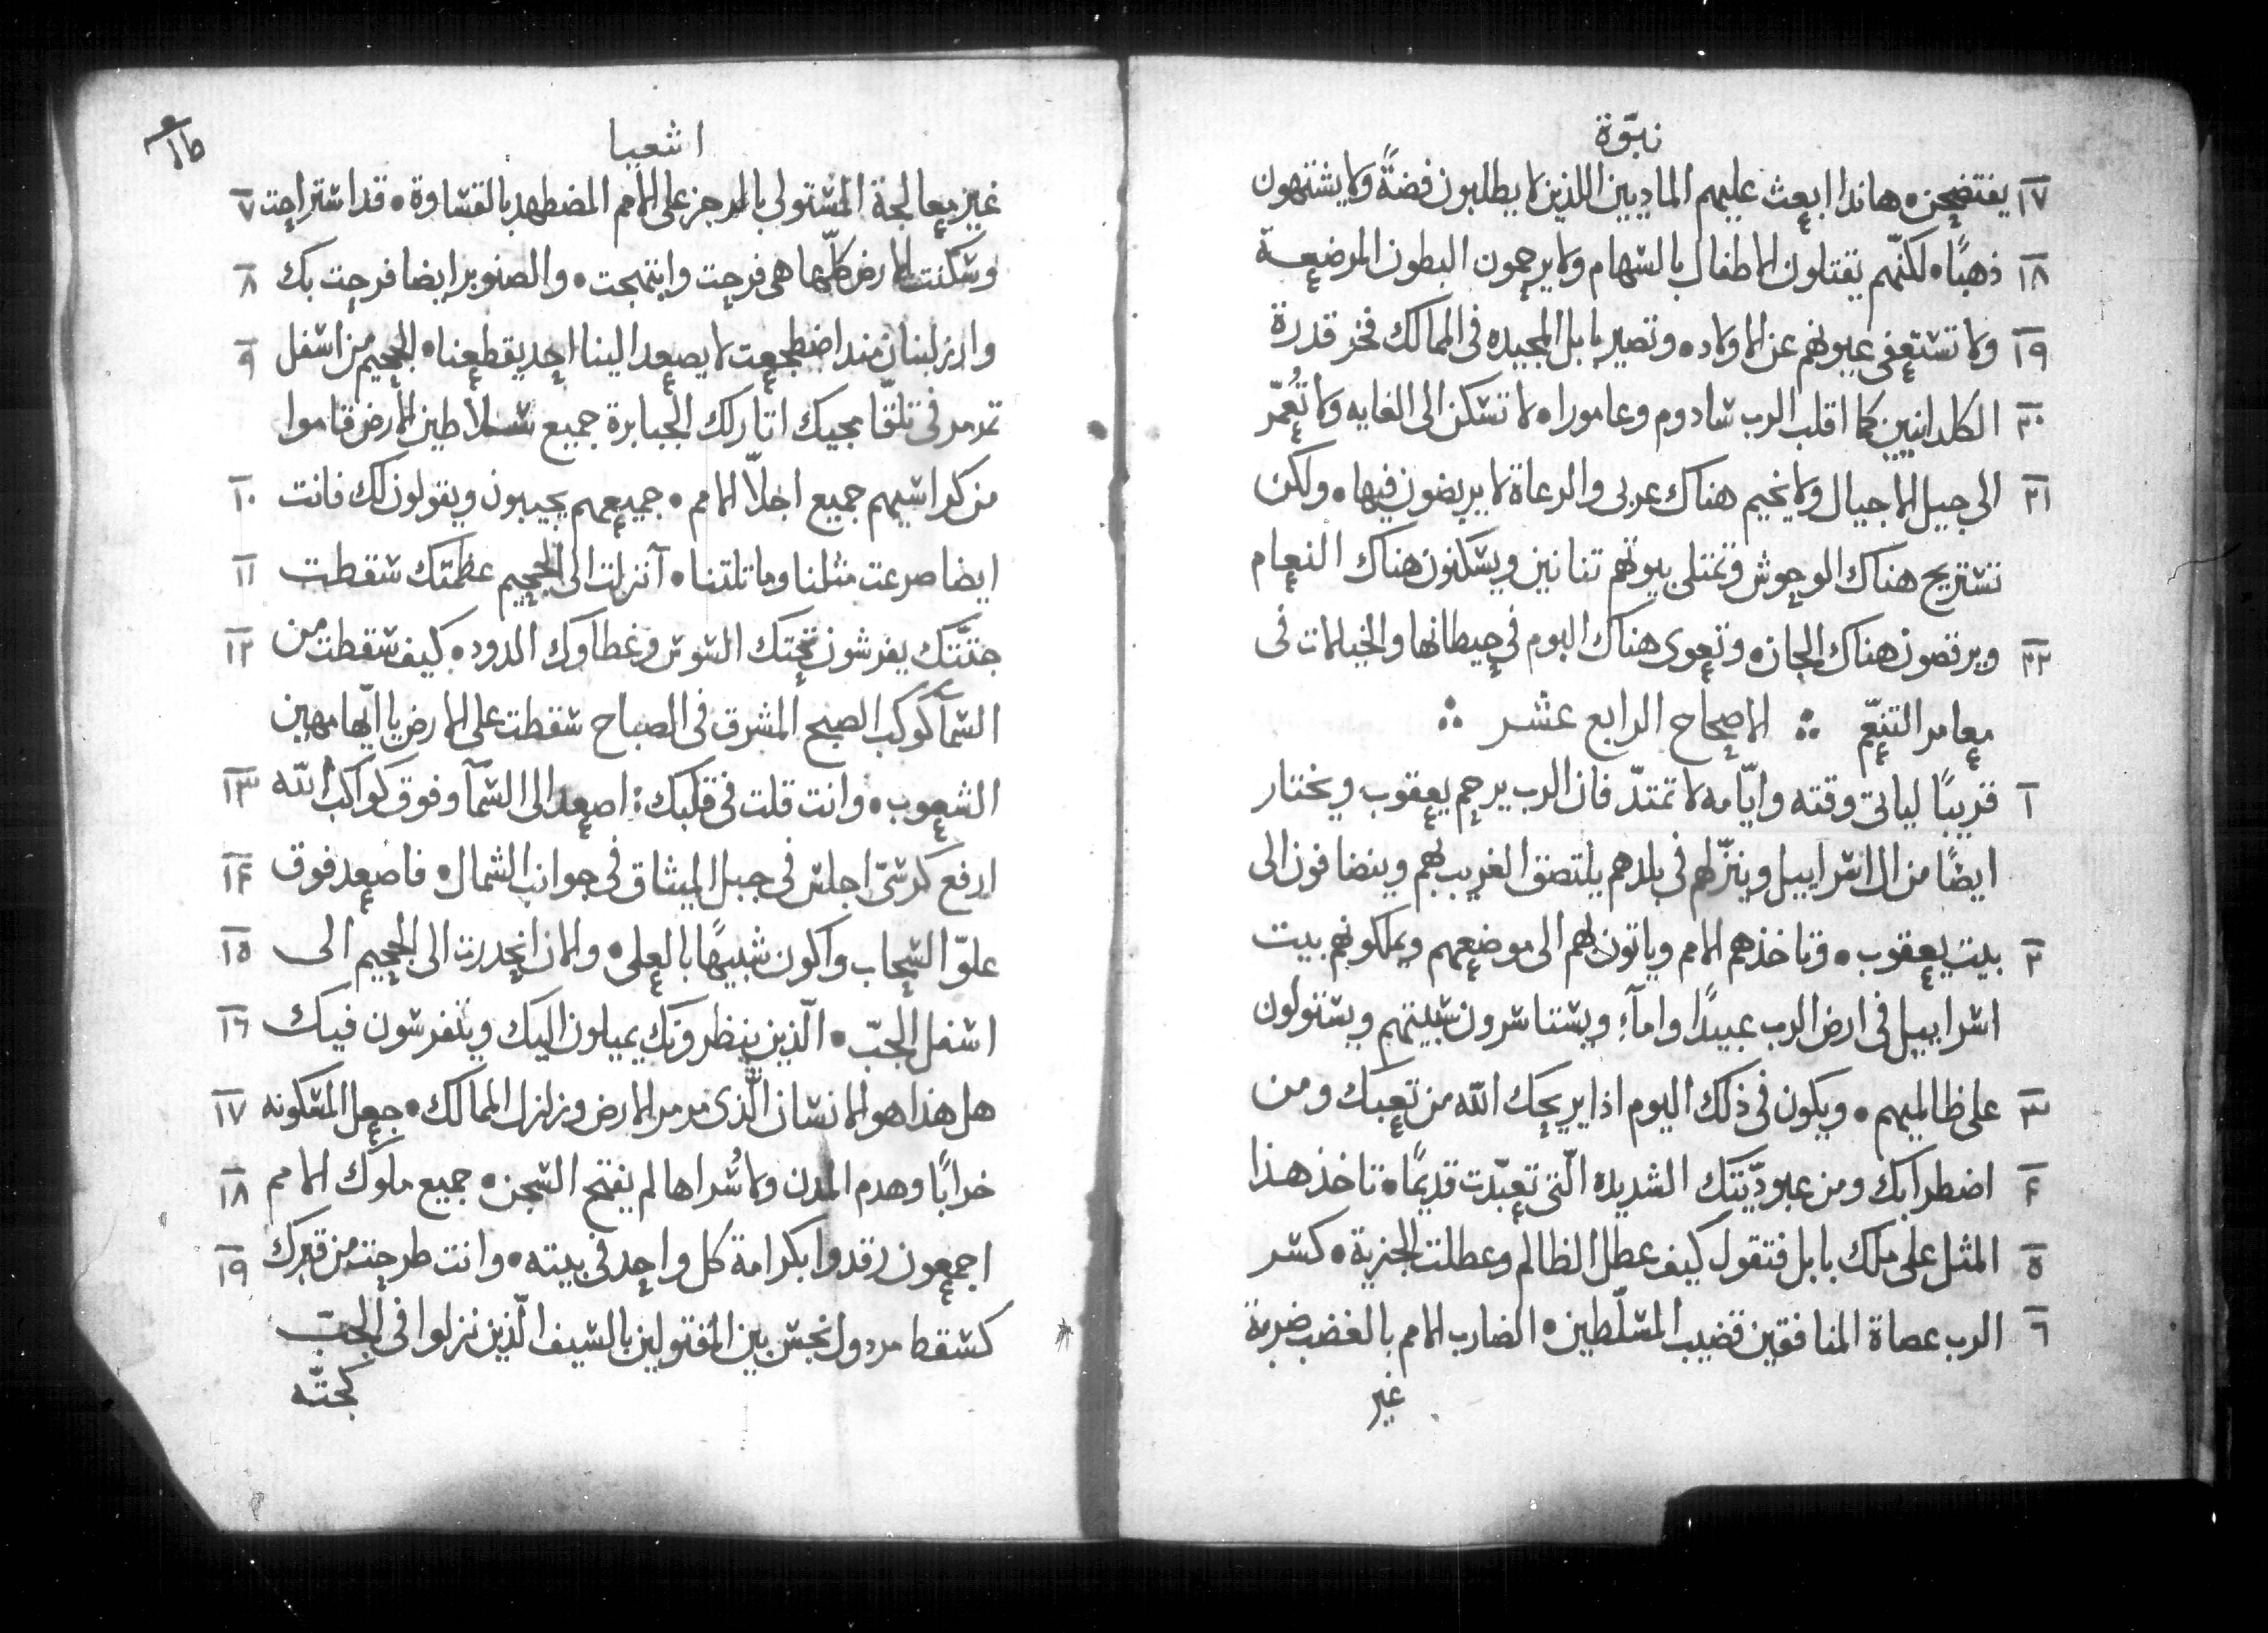 نبوّة
١٧ يفتضحن • هانذا ابعث عليهم الماديين اللذين لا يطلبون فضةً ولا يشتهون
١٨ ذهبًا • لكنّهم يقتلون الاطفال بالسهام ولا يرحمون البطون المرضعة
١٩ ولا تستعفى عيونهم عن الاولاد • وتصير بابل المجيده فى الممالك فخر قدرة
٢٠ الكلدانيين كما اقلب الرب سادوم وعامورا • لا تسكن الى الغايه ولا تُعمّر
٢١ الى جيل الاجيال ولا يخيم هناك عربى والرعاة لا يربضون فيها • ولكن
تستريح هناك الوحوش وتمتلى بيوتهم تنانين ويسكنون هناك النعام
٢٢ ويرقصون هناك الجان • وتعوى هناك البوم فى حيطانها والخيلات فى
معامر التنعّم ∴ الاصحاح الرابع عشر ∴
١ قريبًا لياتى وقته وايّامه لا تمتدّ فان الرب يرحم يعقوب ويختار
ايضًا من ال اسراييل وينزّلهم فى بلدهم يلتصق الغريب بهم وينضافون الى
٢ بيت يعقوب • وتاخذهم الامم وياتون بهم الى موضعهم ويملكونهم بيت
اسراييل فى ارض الرب عبيدًا وامآء ويستاسرون سبيتهم ويستولون
٣ على ظالميهم • ويكون فى ذلك اليوم اذا يريحك الله من تعبك ومن
٤ اضطرابك ومن عبوديّتك الشديده الّتى تعبّدت قديمًا • تاخذ هذا
٥ المثل على ملك بابل فتقول كيف عطل الظالم وعطلت الجزية • كسر
٦ الرب عصاة المنافقين قضيب المسلّطين • الضارب الامم بالغضب ضربة
غير
اشعيا
غير معالجة المستولى بالرجز على الامم المضطهد بالقساوة • قد استراحت ٧
وسكنت الارض كلّها هى فرحت وابتهجت • والصنوبر ايضا فرحت بك ٨
وارز لبنان منذ اضطجعت لا يصعد الينا احد يقطعنا • الجحيم من اسفل ٩
تمرمر فى تلقّا مجيك اثار لك الجبابرة جميع سلاطين الارض قاموا
من كراسيهم جميع اجلّا الامم • جميعهم يجيبون ويقولون لك فانت ١٠
ايضا صرعت مثلنا وماثلتنا • آنزلت الى الجحيم عظمتك سقطت ١١
جثّتك يفرشون تحتك السوس وغطاوك الدود • كيف سقطت من ١٢
السمآ كوكب الصبح المشرق فى الصباح سقطت على الارض يا ايّها مهين
الشعوب • وانت قلت فى قلبك : اصعد الى السمآ وفوق كواكب الله ١٣
ارفع كرسّى اجلس فى جبل الميثاق فى جوانب الشمال • فاصعد فوق ١٤
علوّ السحاب واكون شبيهًا بالعلى • والان انحدرت الى الجحيم الى ١٥
اسفل الجبّ • الّذين ينظرونك يميلون اليك ويتفرسون فيك ١٦
هل هذا هو الانسان الّذى مرمر الارض وزلزل الممالك • جعل المسكونه ١٧
خرابًا وهدم المدن ولاسُراها لم يفتح السجن • جميع ملوك الامم ١٨
اجمعون رقدوا بكرامة كل واحد فى بيته • وانت طرحت من قبرك ١٩
كسقط مردول نجس بين المقتولين بالسيف الّذين نزلوا فى الجبّ
كجثّه